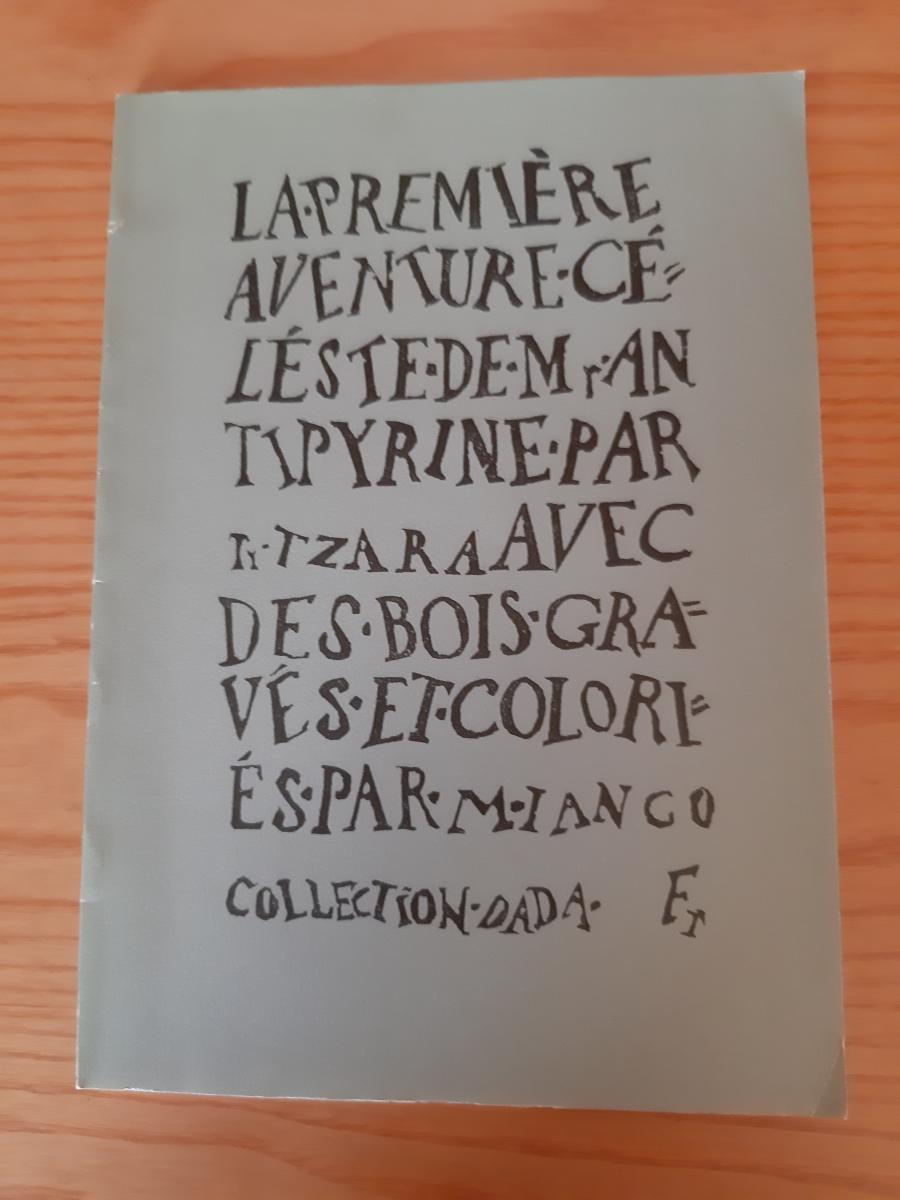 LA·PREMIÈRE
AVENTURE·CÉ=
LÉSTE·DE·Mr·AN
TIPYRINE·PAR
Tr·TZARA AVEC
DES·BOIS·GRA=
VÉS·ET·COLORI=
ÉS·PAR·M·IANCO
COLLECTION·DADA· ET